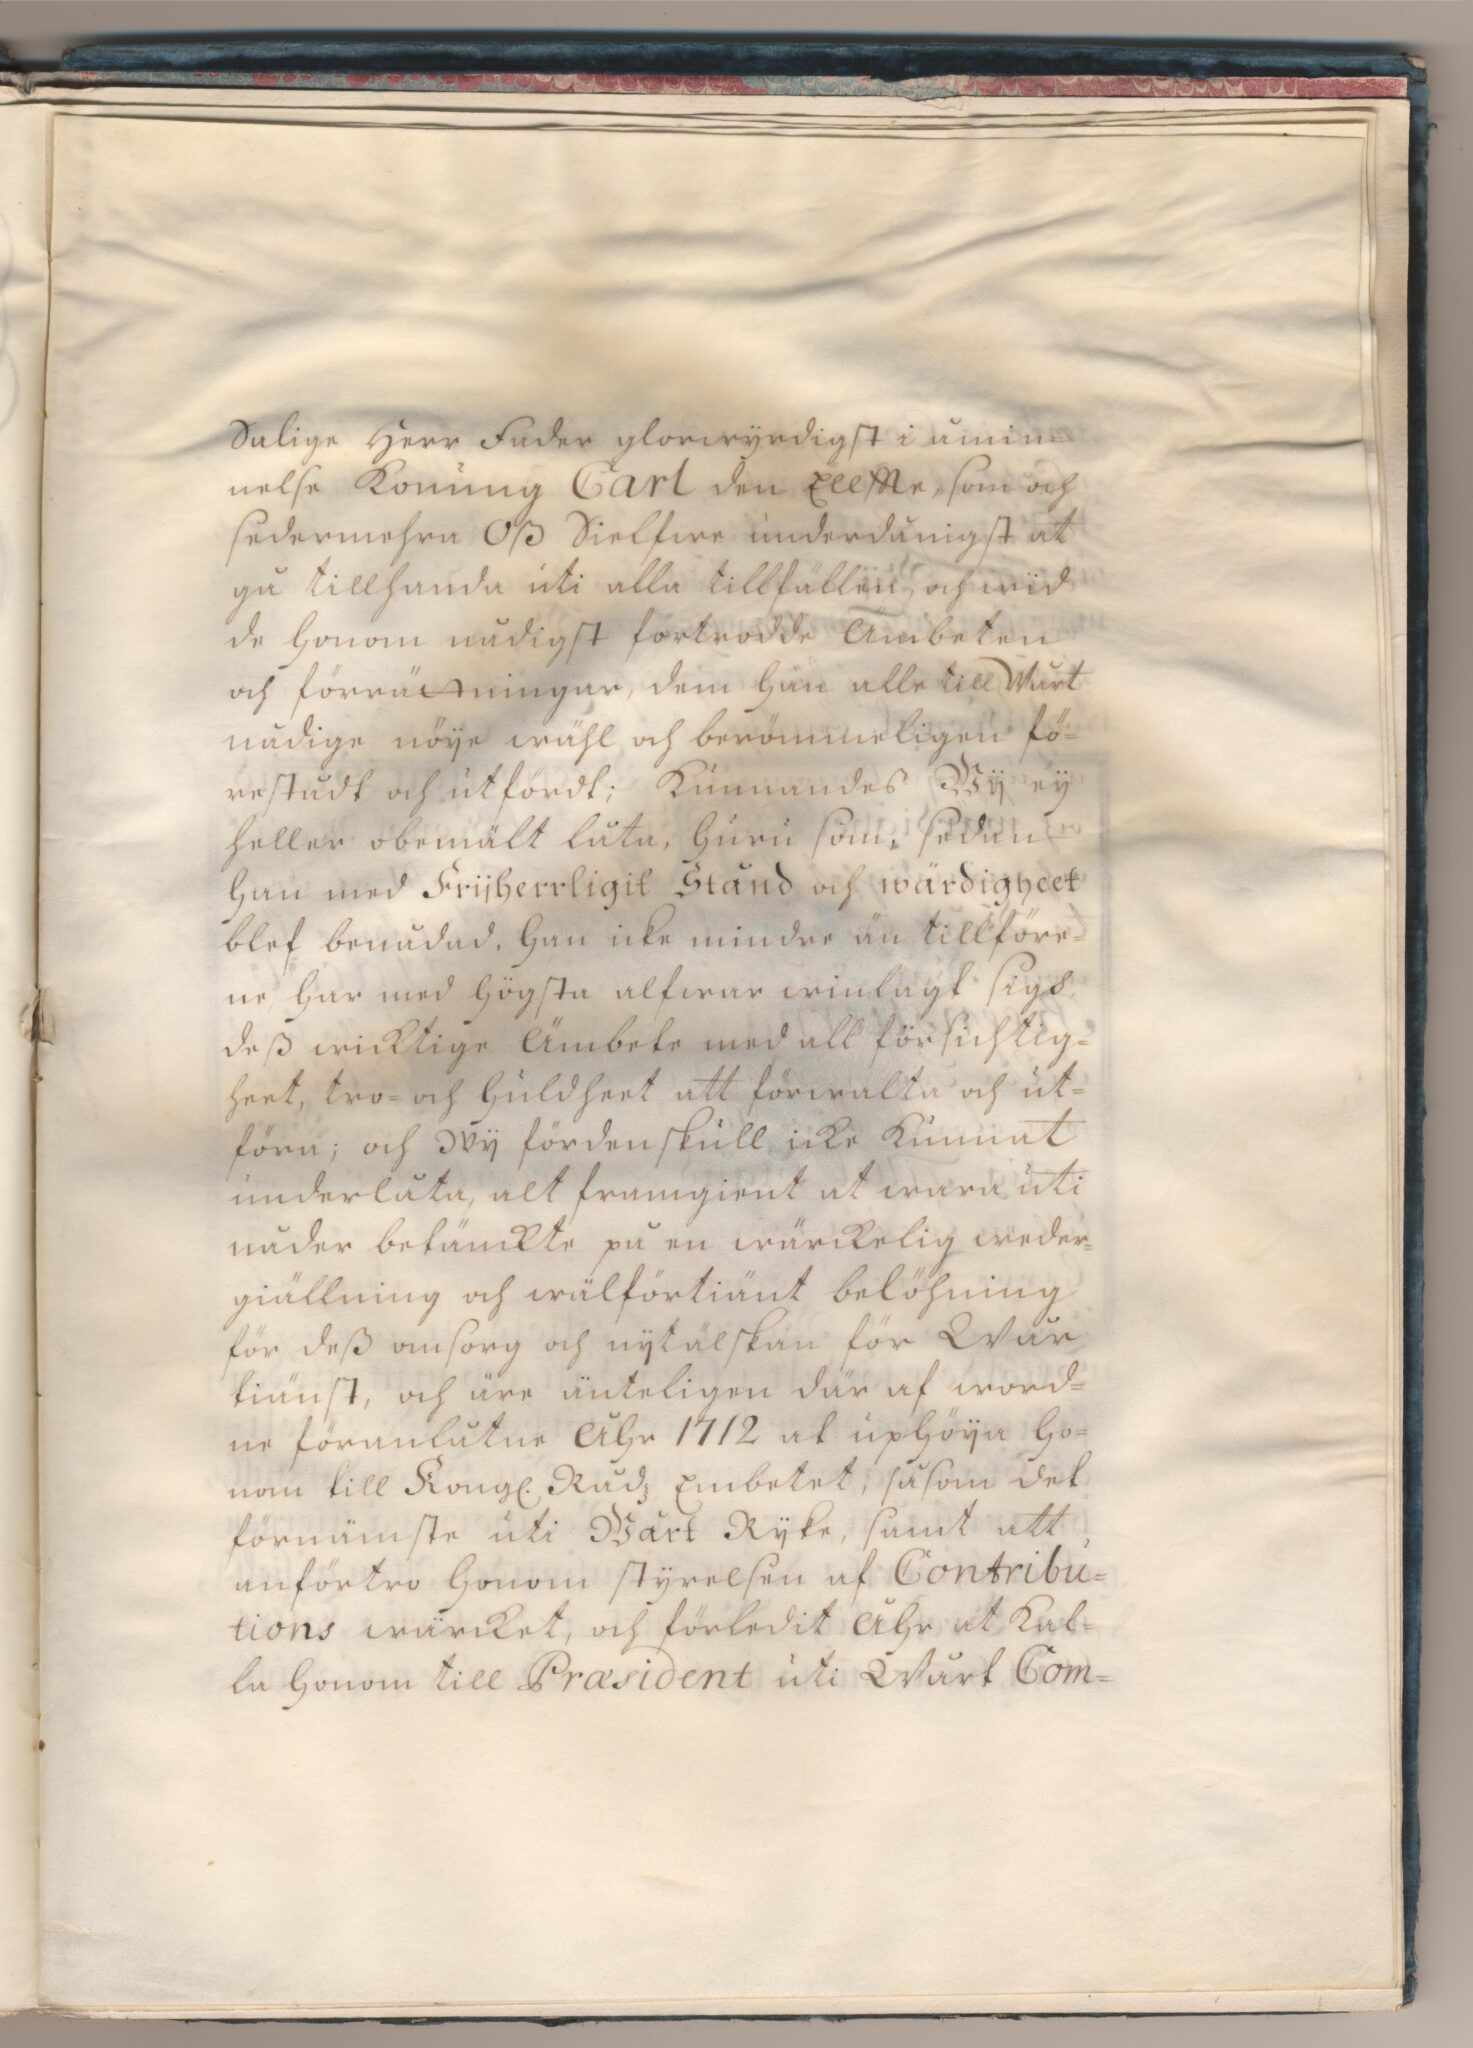 Salige Herr Fader glorwyrdigst i åmin-
nelse Konung Carl den Ellffte, som och
sedermehra Oß Sielfwe underdånigst at
gå tillhanda uti alla tillfällen, och wid
de honom nådigst förtrodde Ämbeten
och förrättningar, dem han alle till Wårt
nådige nöye wähl och berömmeligen fö-
restådt och utfördt; Kunnandes Wy ey
heller obemält låta, huru som, sedan
han med Frijherrligit Stånd och wärdigheet
blef benådad, han icke mindre än tillföre-
ne, har med högsta alfwar winlagt sig
deß wicktige Ämbete med all försichtig-
heet, tro- och huldheet att förwalta och ut-
föra; och Wy fördenskull icke kunnat
underlåta, alt framgient at wara uti
nåder betänckte på en wärckelig weder-
giällning och wälförtiänt belöhning
för deß omsorg och nytälskan för Wår
tiänst, och äre änteligen där af word-
ne föranlåtne Åhr 1712 at uphöya ho-
nom till Kongl. Rådz Embetet, såsom det
förnämste uti Wårt Ryke, samt att
anförtro honom styrelsen af Contribu-
tions wärcket, och förledit Åhr at kal-
la honom till Præsident uti Wårt Com-